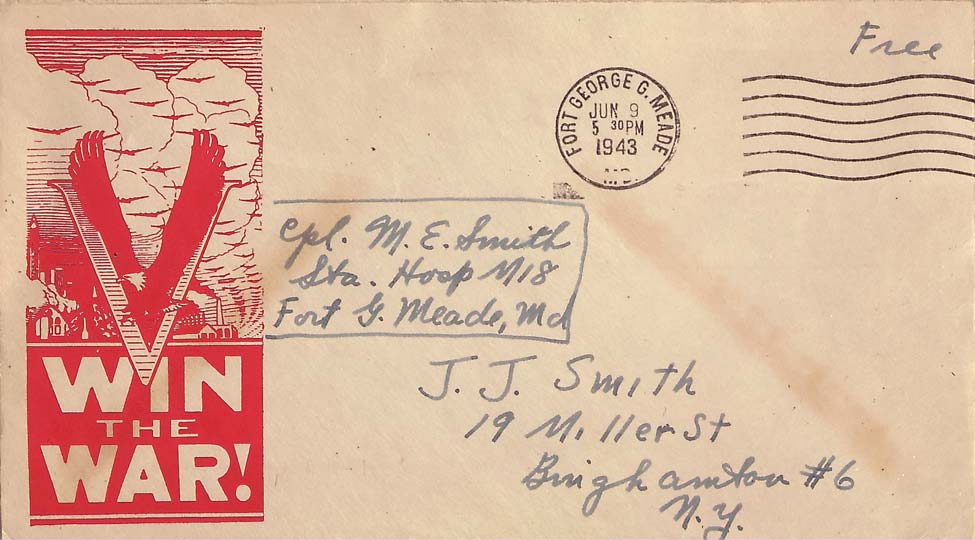 Free
FORT GEORGE G. MEADE
JUN 9
5 30 PM
1943
MD.
Cpl. M. E. Smith
Sta. Hosp M18
Fort G. Meade, Md
J. J. Smith
19 Miller St
Binghamton #6
N.Y.
WIN
THE
WAR!